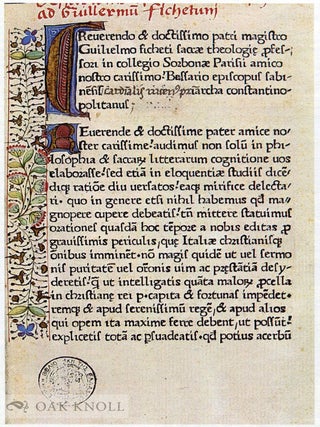 ad Guillermū Fichetum
Reuerendo & doctissimo patri magistro
Guilielmo ficheti sacræ theologię ꝓfes/
sori in collegio Sorbonæ Parisii amico
nostro carissimo: Bessario episcopus sabi/
nēsis cardinalis nicenꝰ priarcha constantino
politanus
Reuerende & doctissime pater amice nos/
ter carissime: audimus non solū in phi/
losophia & sacraꝝ litterarum cognitione uos
elaborasse: sed etiā in eloquentiæ studiis dicē/
diqꝫ ratiōe diu uersatos: eaqꝫ mirifice delecta/
ri. quo in genere etsi nihil habemus qđ ma/
gnopere cupere debeatis: tn̄ mittere statuimus
orationes quasdā hoc tēpore a nobis editas ꝓ
grauissimis periculis; quę Italiæ christianisqꝫ
onibus imminēt. nō magis quidē ut uel sermo
nis puritatē uel or̄onis uim ac pręstātiā desy/
deretis: qꝫ ut intelligatis quāta maloꝝ ꝓcella
in christianę rei p. capita & fortunas impēdet.
remqꝫ & apud serenissimū regē, & apud alios
qui opem ita maxime ferre debent, ut possūt:
explicetis totā ac ꝑsuadeatis. qđ potius acerbū
OAK KNOLL